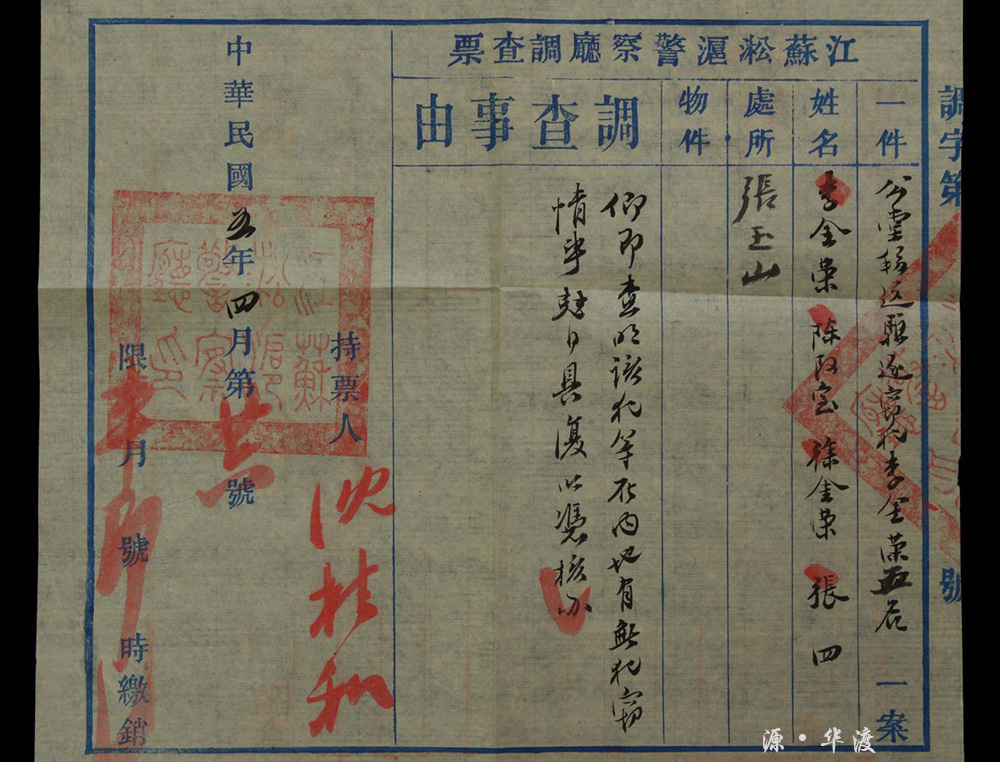 調字第
號
江蘇淞滬警察廳調查票
一件 公堂移送驅逐竊犯李金榮五名 一案
姓名 李金榮 陳阿宝 徐金榮 張四
處所 張玉山
物件
調查事由
仰即查明該犯等在內地有無犯竊
情事 日具復以憑核办
持票人 沈桂和
中華民國五年四月第 號
限 月 號 時繳銷
江蘇淞滬警察廳印
源·华渡